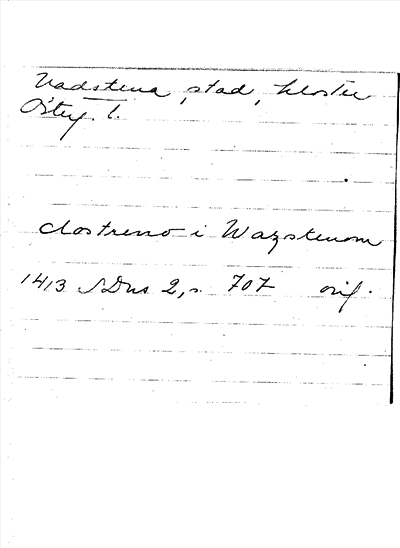 Vadstena, stad, kloster
Östg. l.
clostreno i Wazstenom
1413 SDns 2, s. 707 orig.